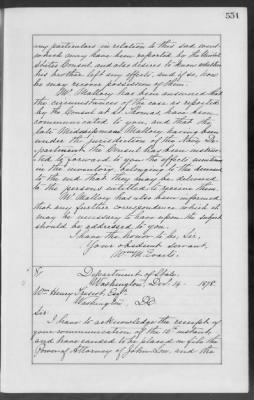 551
any particulars in relation to this sad event
which may have been reported by the United
States Consul, and also desires to know whether
his brother left any effects, and if so, how
he may recover possession of them.
Mr. Mallory has been answered that
the circumstances of the case as reported
by the Consul at St. Thomas, have been
communicated to you, and that the
late Midshipman Mallory having been
under the jurisdiction of the Navy De-
partment the Consul has been instruc-
ted to forward to you the effects mention
in the inventory belonging to the deceased
to the end that they may be delivered
to the persons entitled to receive them.
Mr. Mallory has also been informed
that any further correspondence which it
may be necessary to have upon the subject
should be addressed to you.
I have the honor to be, Sir,
Your obedient servant,
Wm. M. Evarts.
Department of State.
Washington, 14 1878.
Wm Henry Esqr.
Washington, D.C.
Sir:
I have to acknowledge the receipt of
your communication of the 12th instant,
and have caused to be placed on file the
Power of Attorney of John and the